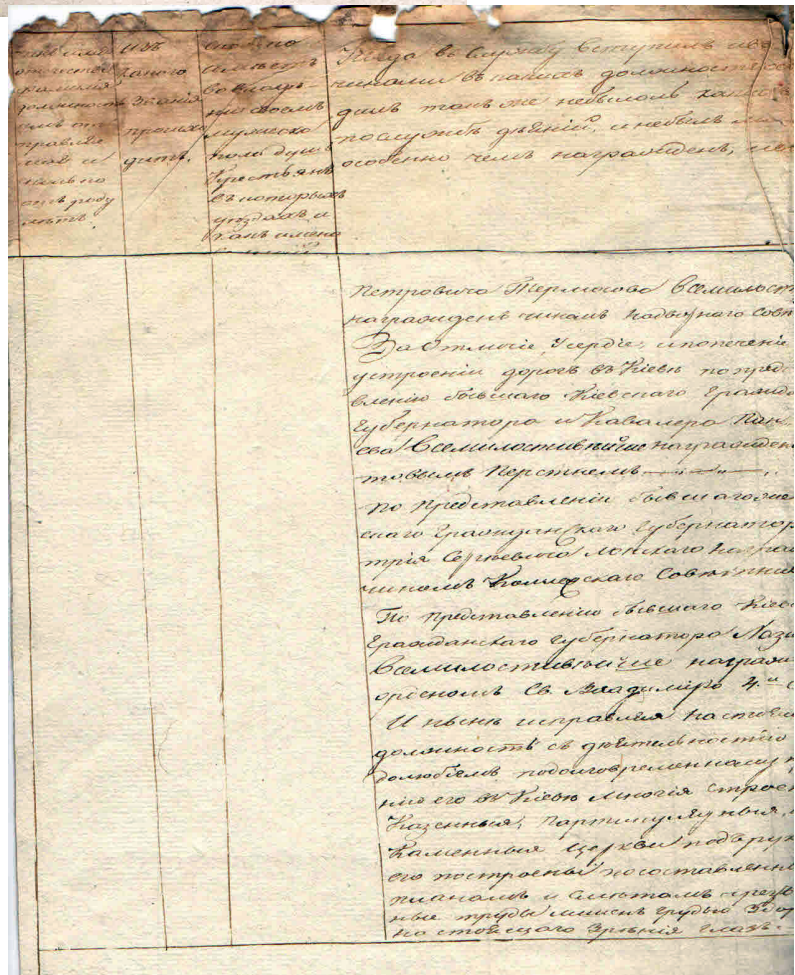 отчество
фамилия
должность
от роду
лѣтъ.
изъ
какого
званія
происхо
дитъ.
сколько
имѣетъ
во владѣ-
ніи своемъ
мужеска
полу душъ
крестьянъ
въ которыхъ
уѣздахъ и
Когда въ службу вступилъ и
чинами въ какихъ должностяхъ
дилъ такъ же небылоль каких
по службѣ дѣяній, и небылъ ли
особенно чемъ награжденъ, кро
Петровича Тормосова Всемилост
награжденъ чиномъ Надворнаго Совѣт
За отличіе, усердіе, и попеченіи
устроеніи дорогъ въ Кіевѣ по предс
вленію бывшаго Кіевскаго Гражда
Губернатора и Кавалера Пан
ева Всемилостивѣйше награжден
товымъ Перстнемъ
По Представленіи бывшаго Кіе
скаго Гражданскаго Губернатор
трія Сергѣевича Ланскаго награ
чиномъ Коллежскаго Совѣтника
По Представленію бывшаго Кіев
Гражданскаго Губернатора Нази
Всемилостивѣйше награж
орденомъ Св. Владиміра 4й с
И нынѣ исправляя настоящ
должность съ дѣятельностію
долюбіемъ по долговременному
нію его въ Кіевѣ многія строен
Казенныя, партикулярныя,
Каменныя Церкви подъ рук
его построены по составленн
планамъ и смѣтамъ чрезъ
ныя труды лишенъ грудью здор
настоящаго зрѣнія глазъ.